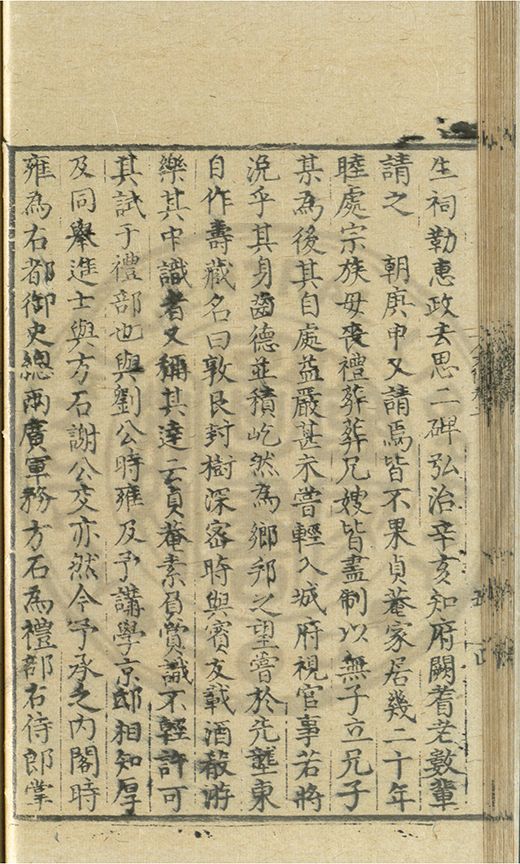 生祠勒惠政去思二碑弘治辛亥知府闕耆老數輩
請之　朝庚申又請焉皆不果貞菴家居幾二十年
睦處宗族毋喪禮葬葬兄嫂皆盡制以無子立兄子
某為後其自處益嚴甚未嘗輕入城府視官事若將
浼乎其身齒德並積屹然為鄉邦之望嘗於先壟東
自作壽藏名曰敦艮封樹深密時與賓友載酒殽游
樂其中識者又稱其達云貞菴素負賞識不輕許可
其試于禮部也與劉公時雍及予講學京邸相知厚
及同舉進士與方石謝公交亦然今予承乏內閣時
雍為右都御史總兩廣軍務方石為禮部右侍郎掌